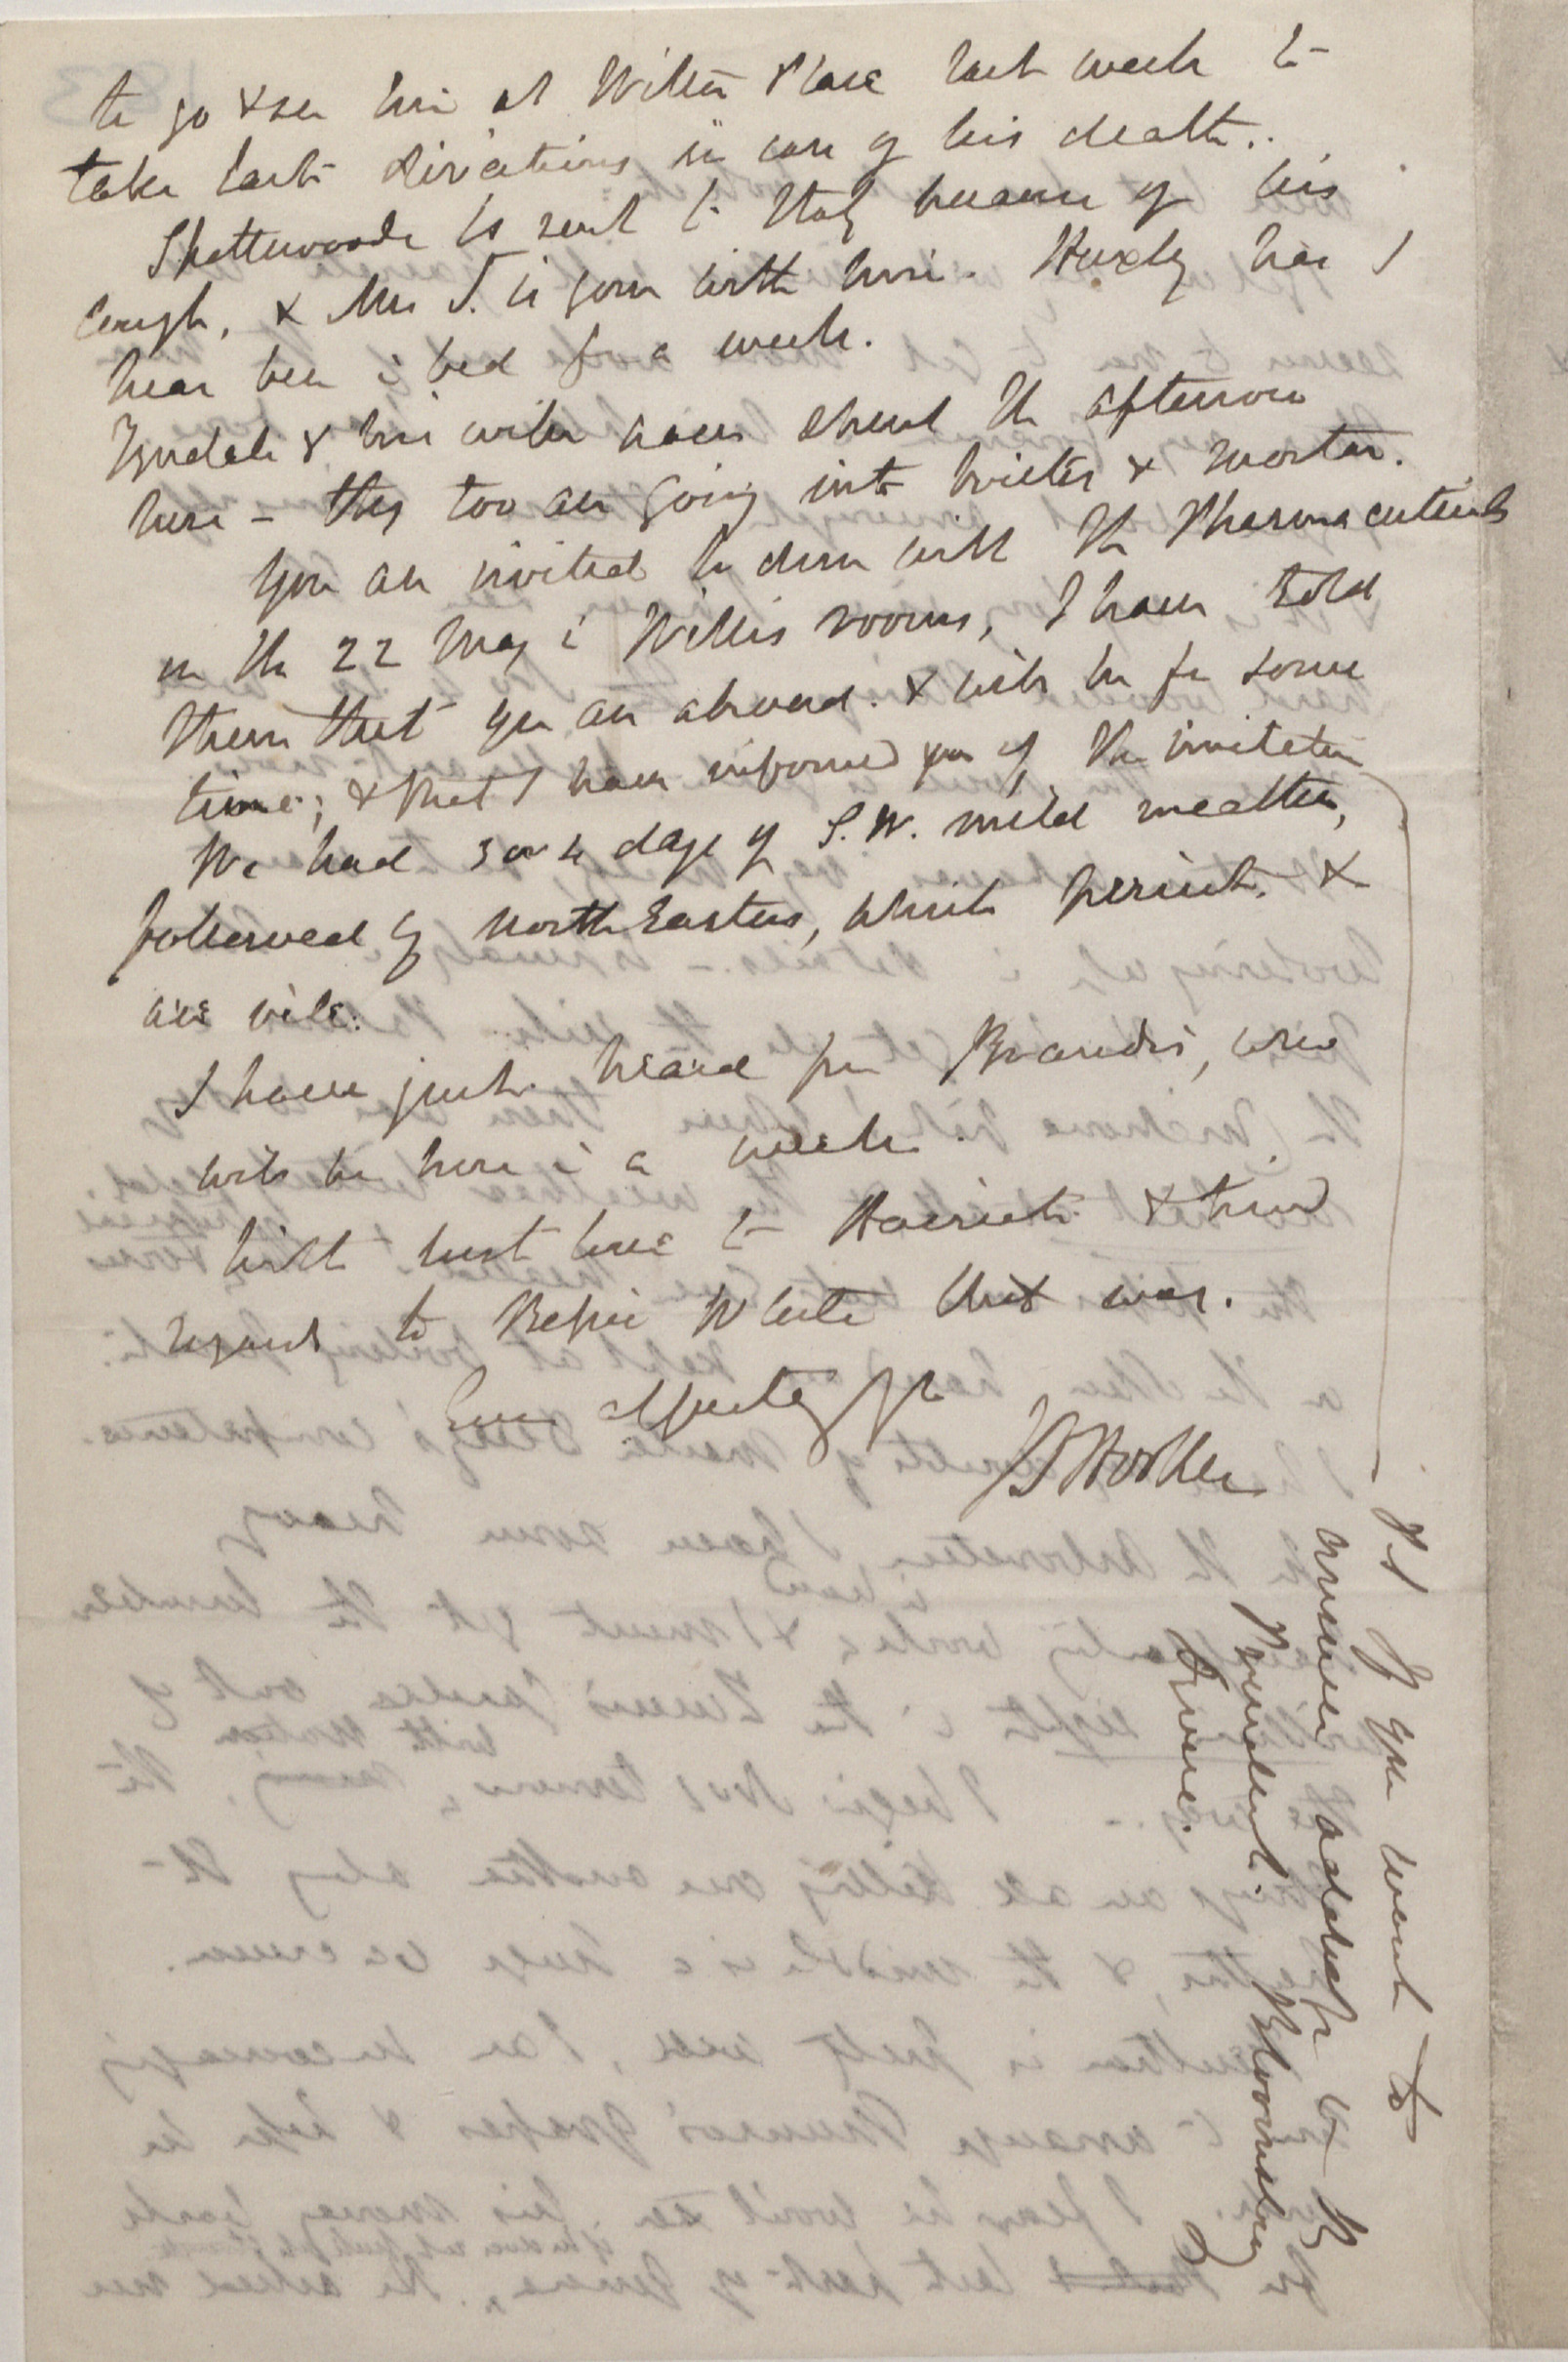 to go & see him at Wilton Place last week to
take last directions in case of his death.
Spottiswoode is sent to Italy because of his
cough, & Mrs S. is gone with him. Huxley has I
hear been in bed for a week.
Tyndall & his wife have spent the afternoon
here – they too are going into bricks & mortar.
You are invited to dine with the Pharmaceuticals
on the 22 May in Willis rooms, I have told
them that you are abroad. & will be for some
time; & that I have informed you of the invitation
We had 3 or 4 days of S.W. mild weather,
followed by North Easters, which persist, &
are vile.
I have just heard from Brandis, who
will be here in a week.
With best love to Harriet & kind
regards to Bessie White that was.
Ever affectly yr
J D Hooker
PS If you want to
answer address to the
President. Bloomsbury
Square.